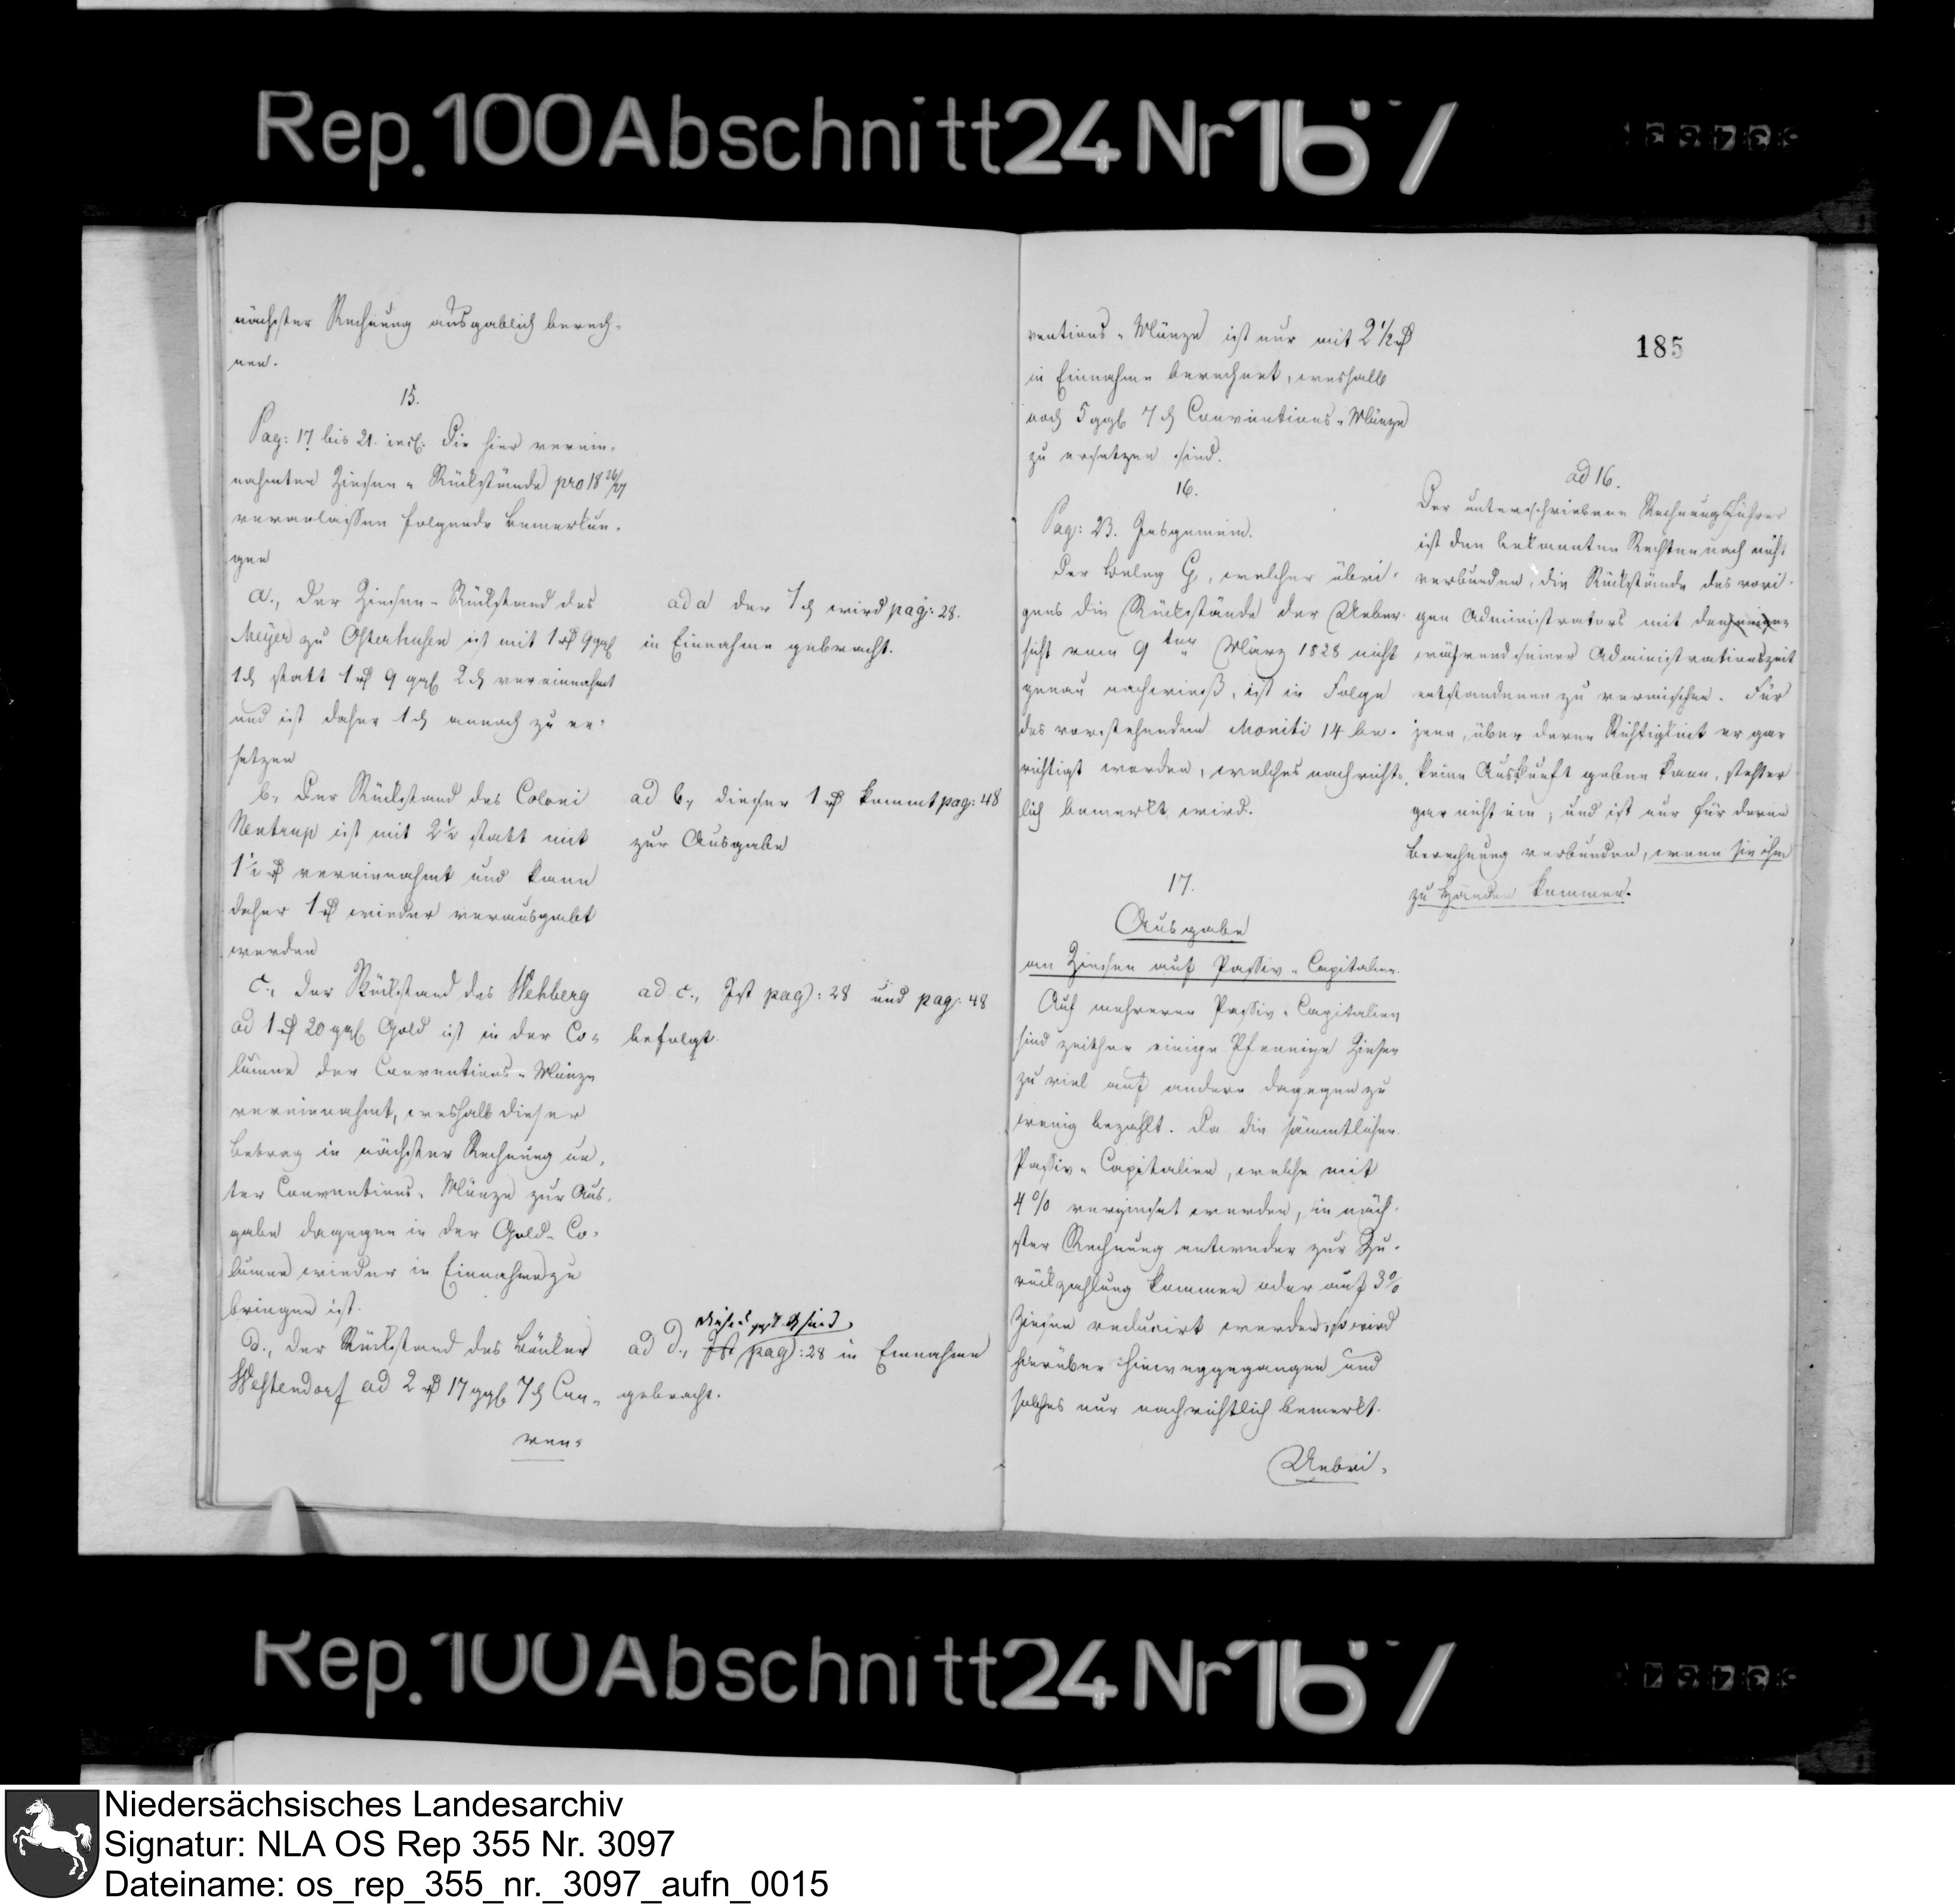 Rep. 100 Abschnitt 24 Nr 167
nächster Rechnung ausgablich berech-
nen.
15.
Pag: 17 bis 21. incl. Die hier verein-
nahmten Zinsen-Rückstände pro 18 26/27
veranlassen folgende Bemerkun-
gen
a., Der Zinsen-Rückstand des
Meyer zu Osterhusen ist mit 1 rℓ 9 ggl
1 ₰ statt 1 rℓ 9 ggl 2 ₰ vereinnahmt
und ist daher 1 ₰ annoch zu er-
setzen
b, Der Rückstand des Coloni
Nentrup ist mit 2½ statt mit
1½ rℓ vereinnahmt und kann
daher 1 rℓ wieder verausgabt
werden
c., Der Rückstand des Wehberg
ad 1 rℓ 20 ggl Gold ist in der Co-
lumne der Conventions-Münze
vereinnahmt, weshalb dieser
Betrag in nächster Rechnung un-
ter Conventions-Münze zur Aus-
gabe dagegen in der Gold-Co-
lumne wieder in Einnahme zu
bringen ist.
d., Der Rückstand des
Westendorf ad 2 rℓ 17 ggl 7 ₰ Con-
ven-
ad a der 1 ₰ wird pag: 28.
in Einnahme gebracht.
ad b, dieser 1 rℓ kommt pag: 48
zur Ausgabe
ad c., Ist pag: 28 und pag: 48
befolgt.
sind
ad d., Ist pag: 28 in Einnahme
gebracht.
185
ventions-Münze ist nur mit 2½ rℓ
in Einnahme berechnet, weshalb
noch 5 ggl 7 ₰ Conventions-Münze
zu ersetzen sind.
16.
Pag: 23. Insgemein.
Der Beleg G, welcher übri-
gens die Rückstände der Ueber-
sicht vom 9ten März 1828 nicht
genau nachwies, ist in Folge
des vorstehenden Moniti 14 be-
richtigt worden, welches nachricht-
lich bemerkt wird.
17.
Ausgabe
an Zinsen auf Passiv-Capitalien.
Auf mehreren Passiv-Capitalien
sind zeither einige Pfennige Zinsen
zu viel auf andere dagegen zu
wenig bezahlt. Da die sämmtlichen
Passiv-Capitalien, welche mit
4% verzinset werden, in näch-
ster Rechnung entweder zur Zu-
rückzahlung kommen oder auf 3%
Zinsen reducirt werden, so wird
hierüber hinweggegangen und
solches nur nachrichtlich bemerkt.
Uebri-
ad 16.
Der unterschriebene Rechnungsführer
ist den bekannten Rechten nach nicht
verbunden, die Rückstände des vori-
gen Administrators mit denjenigen
während seiner Administrationszeit
entstandenen zu vermischen. Für
jene, über deren Richtigkeit er gar
keine Auskunft geben kann, steht er
gar nicht ein; und ist nur für deren
Berechnung verbunden, wenn sie ihm
zu Händen kommen.
Rep. 100 Abschnitt 24 Nr 167
Niedersächsisches Landesarchiv
Signatur: NLA OS Rep 355 Nr. 3097
Dateiname: os_rep_355_nr._3097_aufn_0015